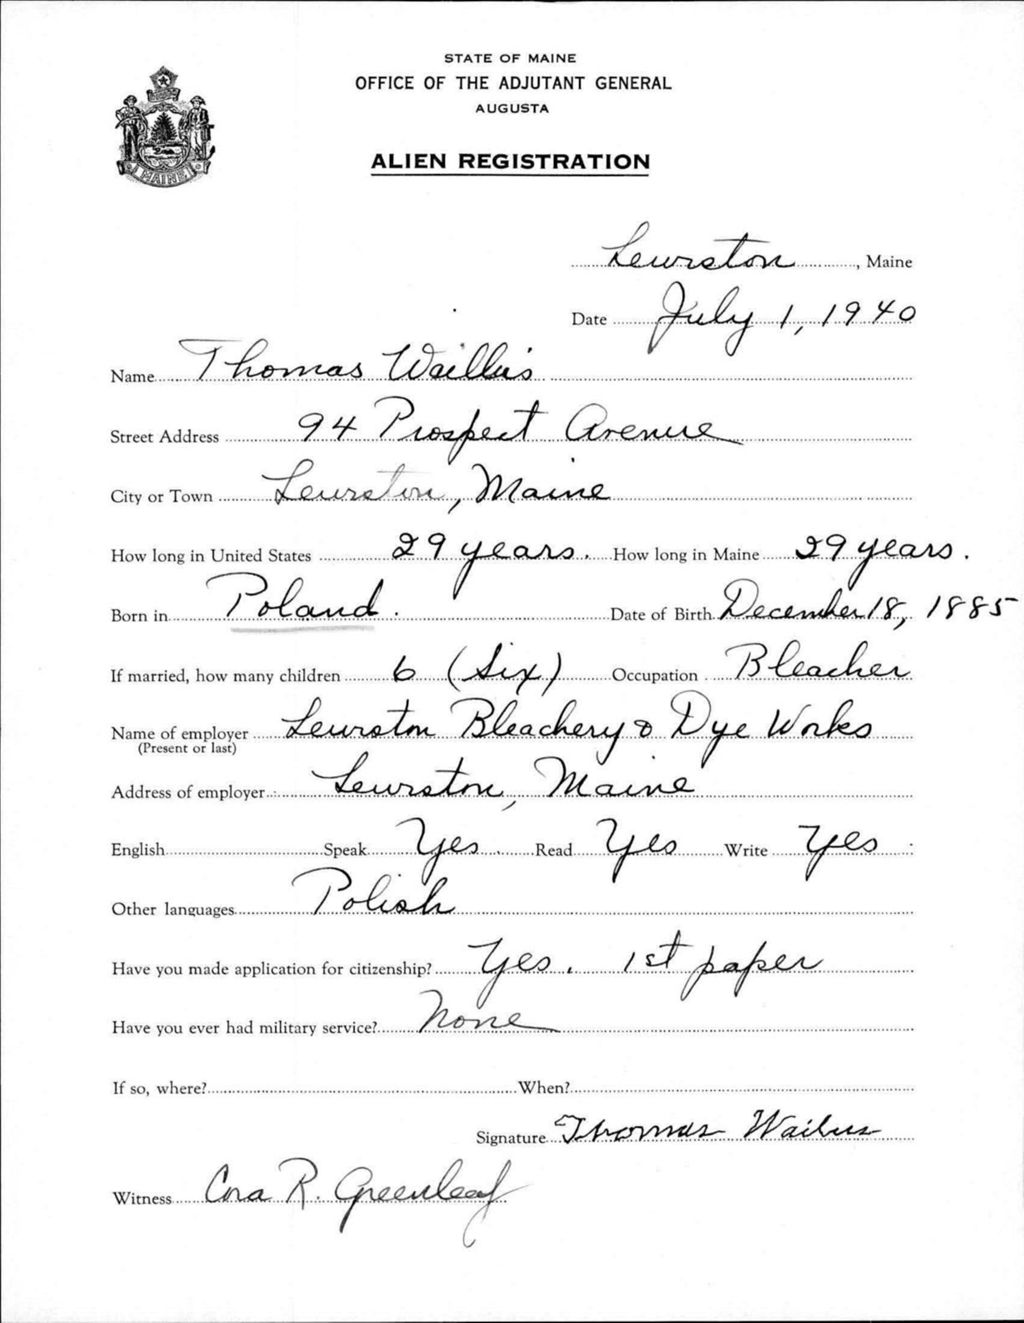 STATE OF MAINE
OFFICE OF THE ADJUTANT GENERAL
AUGUSTA
MAINE
ALIEN REGISTRATION
Lewiston, Maine
Date July 1, 1940
Name Thomas
Street Address 94 Prospect Avenue
City or Town Lewiston, Maine
How long in United States 29 years. How long in Maine 29 years.
Born in Poland. Date of Birth December 18, 1885
If married, how many children 6 (Six) Occupation Bleacher
Name of employer Lewiston Bleachery & Dye Works
(Present or last)
Address of employer Lewiston, Maine
English Speak Yes. Read Yes Write Yes
Other languages Polish
Have you made application for citizenship? Yes. 1st paper
Have you ever had military service? None
If so, where? When?
Signature Thomas
Witness Cora R. Greenleaf